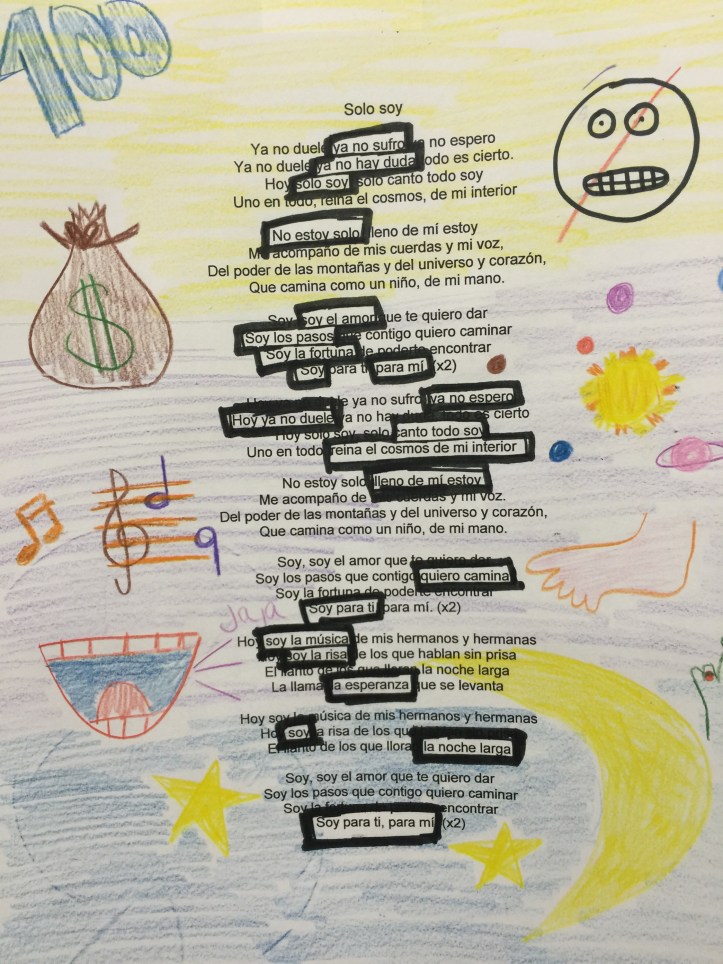 100
Solo soy
Ya no duele ya no sufro no espero
Ya no duele ya no hay duda todo es cierto.
Hoy solo soy solo canto todo soy
Uno en todo, reina el cosmos, de mi interior
No estoy solo lleno de mí estoy
Me acompaño de mis cuerdas y mi voz,
Del poder de las montañas y del universo y corazón,
Que camina como un niño, de mi mano.
Soy, soy el amor que te quiero dar
Soy los pasos que contigo quiero caminar
Soy la fortuna de poderte encontrar
Soy para ti para mí (x2)
$
ya no sufro ya no espero
Hoy ya no duele ya no hay duda todo es cierto
Hoy solo soy, solo canto todo soy
Uno en todo reina el cosmos de mi interior
No estoy solo lleno de mí estoy
Me acompaño de cuerdas y mi voz.
Del poder de las montañas y del universo y corazón,
Que camina como un niño, de mi mano.
Soy, soy el amor que te quiero dar
Soy los pasos que contigo quiero camina
Soy la fortuna de poderte encontrar
Soy para ti para mí. (x2)
Jaja
Hoy soy la música de mis hermanos y hermanas
soy la risa de los que hablan sin prisa
El llanto de los que lloran la noche larga
La llama la esperanza que se levanta
Hoy soy la música de mis hermanos y hermanas
Hoy soy la risa de los que
El llanto de los que llora la noche larga
Soy, soy el amor que te quiero dar
Soy los pasos que contigo quiero caminar
Soy la encontrar
Soy para ti, para mí (x2)